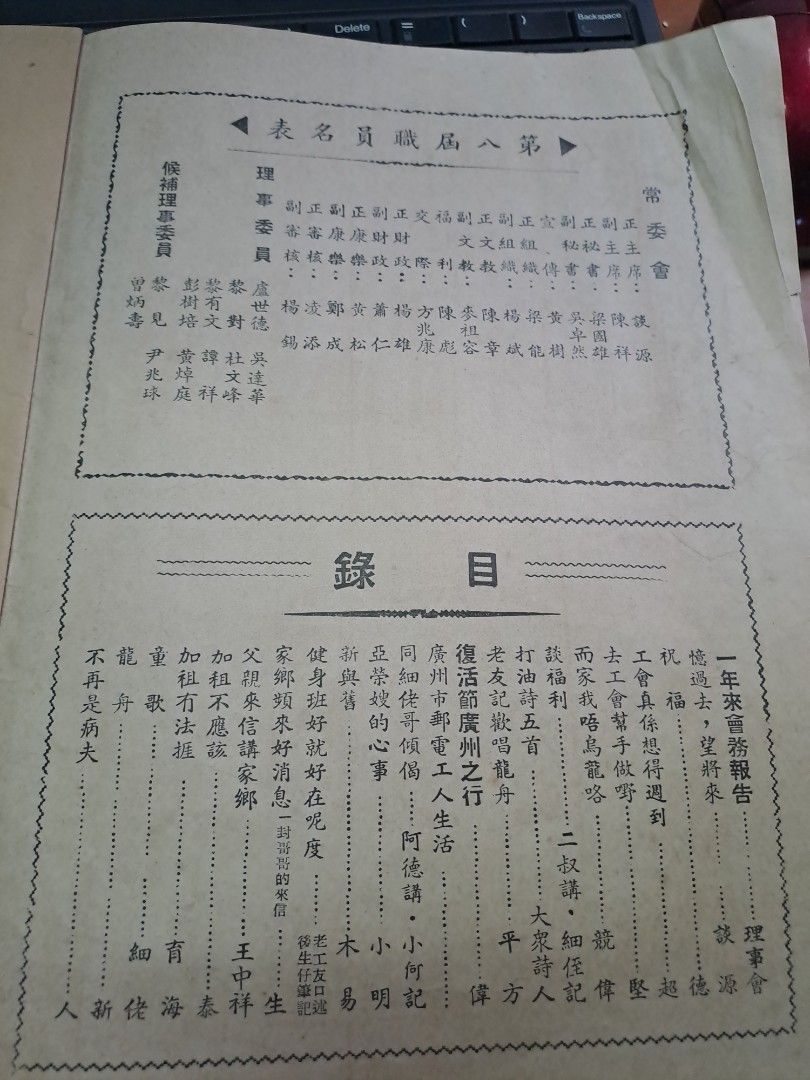 第八屆職員名表
常委會
正主席：談源
副主席：陳祥
正秘書：梁國雄
副秘書：吳卓然
宣傳：黃樹
正組織：梁能
副組織：楊斌
正文教：陳章
副文教：麥祖容
福利：陳彪
交際：方兆康
正財政：楊雄
副財政：蕭仁
正康樂：黃松
副康樂：鄭成
正審核：凌添
副審核：楊錫
理事委員
盧世德 吳達華
黎對 杜文峰
黎有文 譚祥
彭樹培 黃焯庭
候補理事委員
黎見 尹兆球
曾炳壽
目錄
一年來會務報告………理事會
憶過去，望將來………談源
祝福………德
工會真係想得週到………超
去工會幫手做嘢………堅
而家我唔烏龍咯………競偉
談福利………二叔講．細侄記
打油詩五首………大衆詩人
老友記歡唱龍舟………平方
復活節廣州之行………偉
廣州市郵電工人生活………
同細佬哥傾偈………阿德講．小何記
亞榮嫂的心事………小明
新與舊………木易
健身班好就好在呢度………老工友口述 後生仔筆記
家鄉頻來好消息 一封哥哥的來信………生
父親來信講家鄉………王中祥
加租不應該………泰
加租有法捱………育海
童歌………細佬
龍舟………新
不再是病夫………人
Delete
=
(
)
Backspace